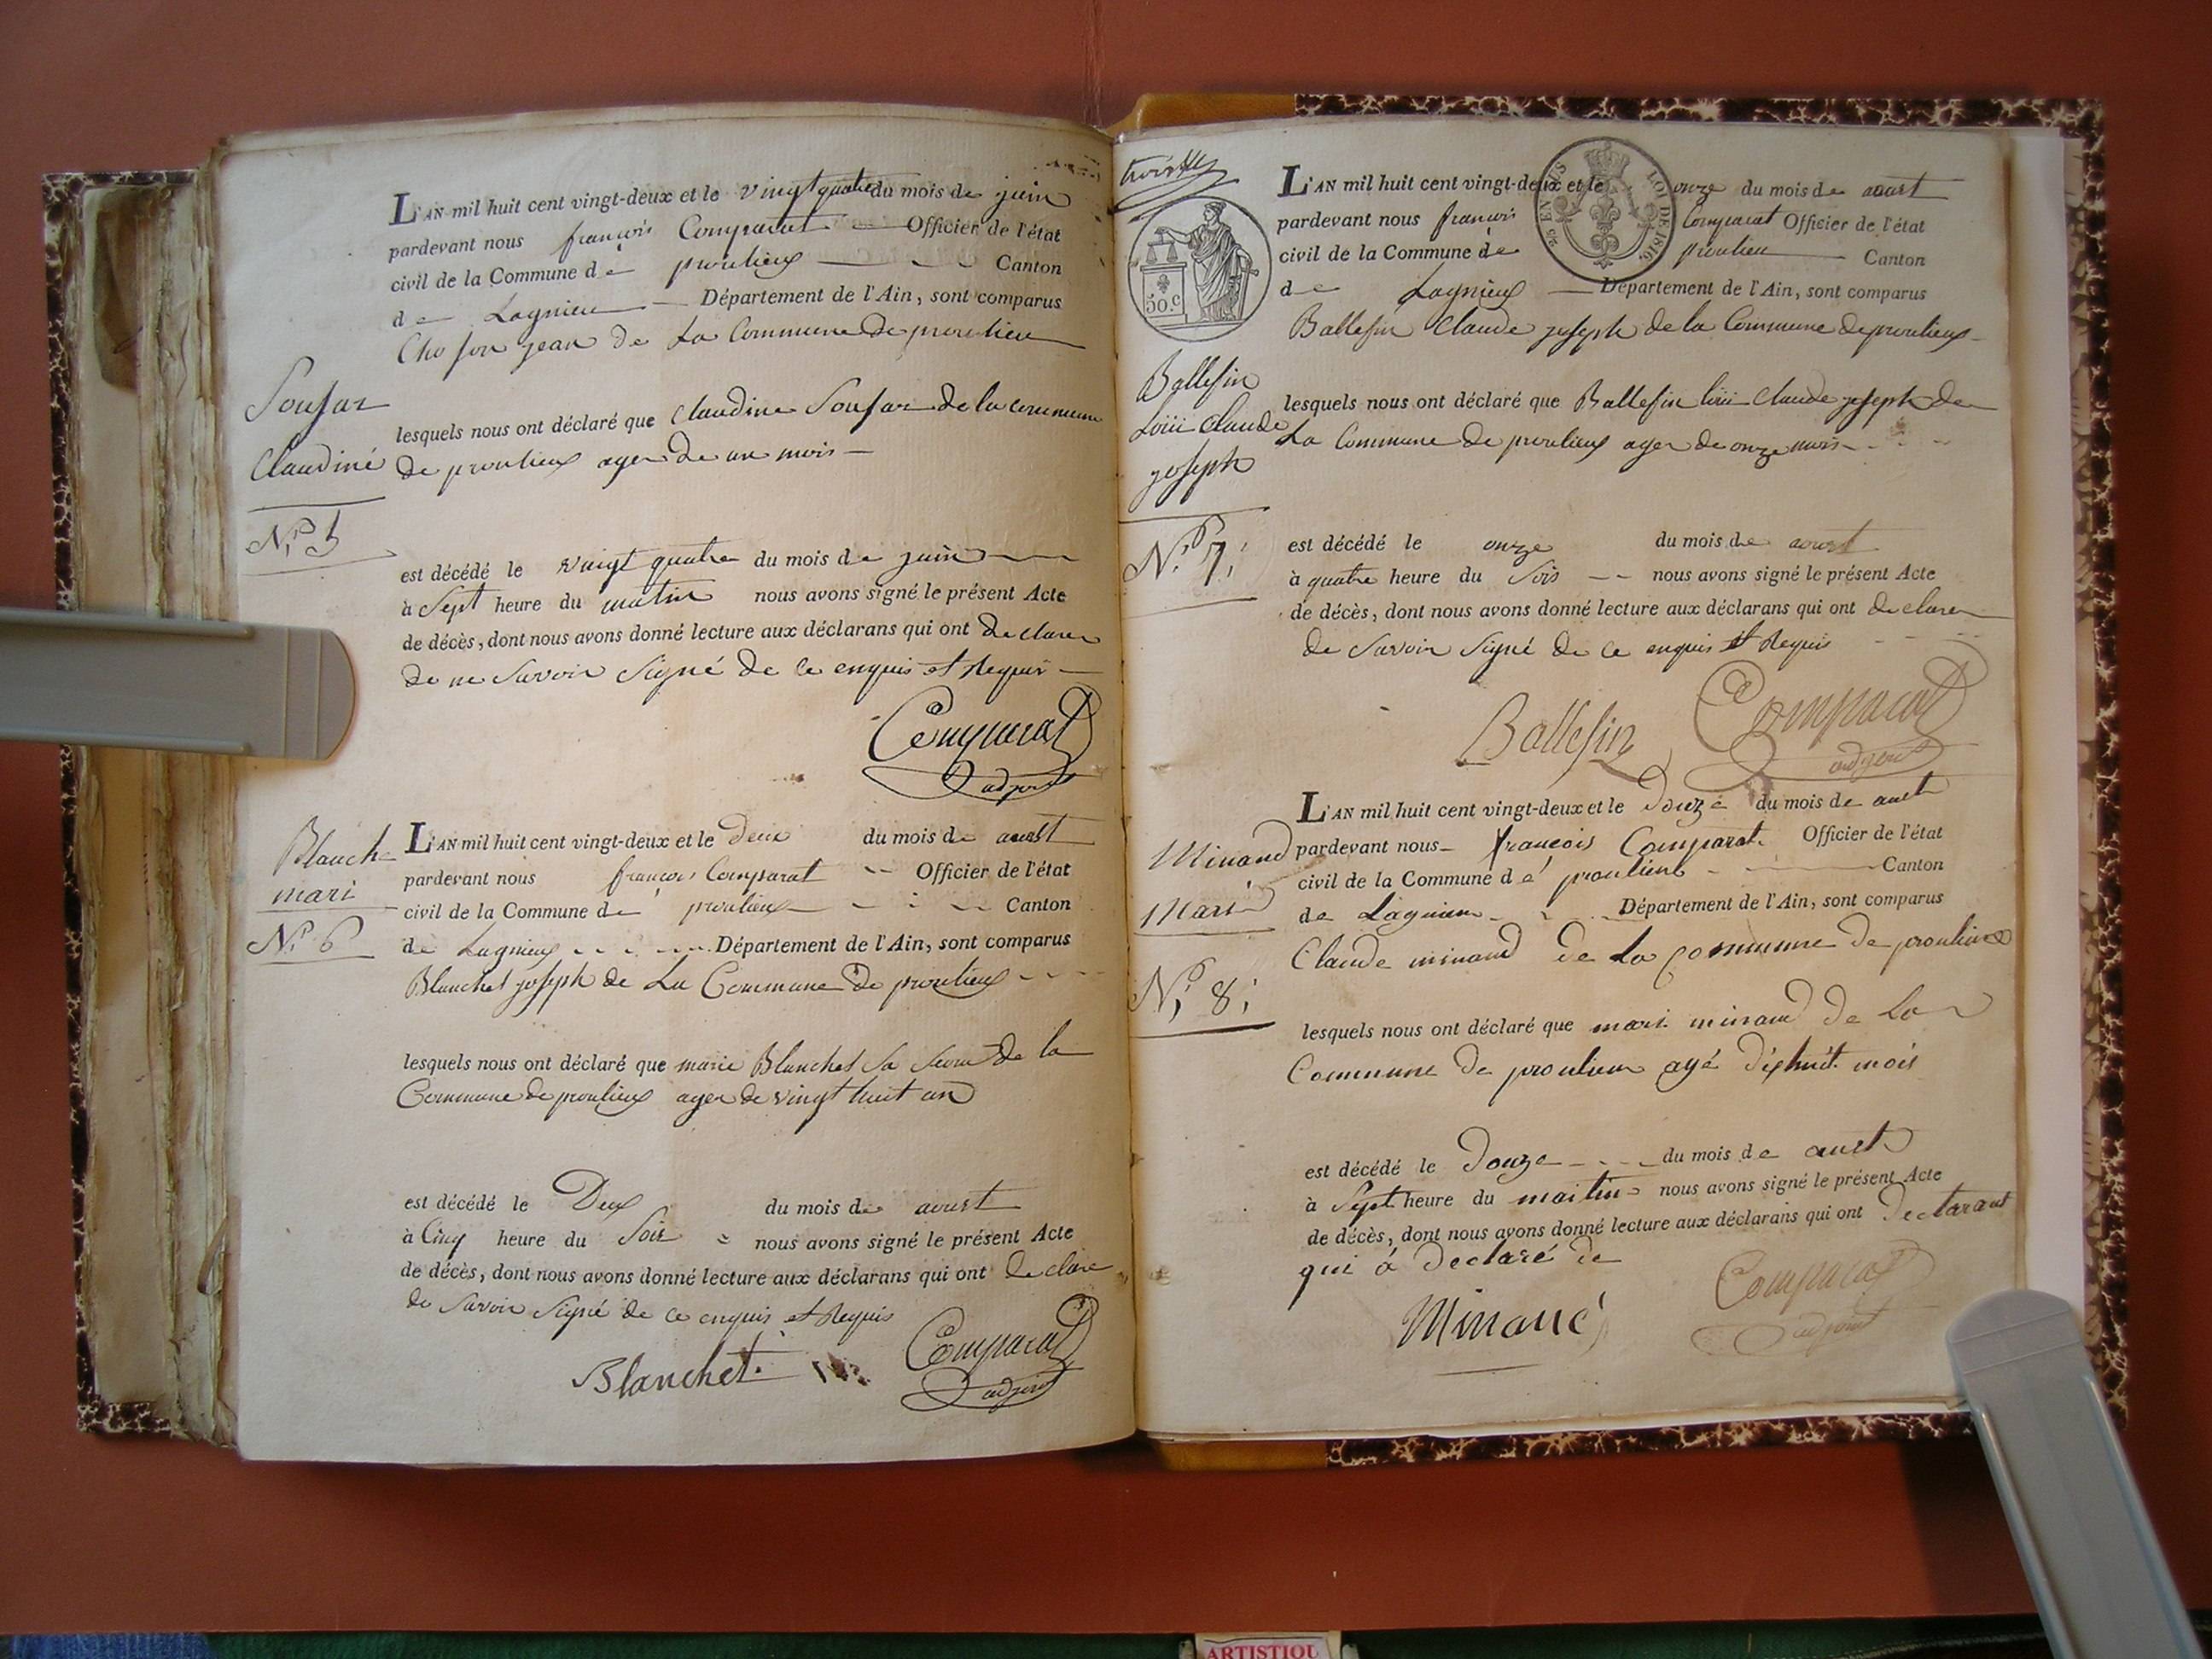 L'AN mil huit cent vingt-deux et le vingt quatre du mois de juin
pardevant nous francois Comparat Officier de l'état
civil de la Commune de proulieux Canton
de Lagnieu Département de l'Ain, sont comparus
Choson jean de La Commune de proulieu
Sonfar
Claudiné
N.o 5
lesquels nous ont déclaré que Claudine Sonfar de la commune
de proulieux ager de un mois
est décédé le vingt quatre du mois de juin
à Sept heure du matin nous avons signé le présent Acte
de décès, dont nous avons donné lecture aux déclarans qui ont declarer
de ne Savoir Signé de ce enquis et Requis
Comparat
adjoint
Blanche
mari
N.o 6
L'AN mil huit cent vingt-deux et le Deux du mois de aoust
pardevant nous francois Comparat Officier de l'état
civil de la Commune de proulieux Canton
de Lagnieux Département de l'Ain, sont comparus
Blanchet joseph de La Commune De proulieux
lesquels nous ont déclaré que marie Blanchet Sa Seur de la
Commune de proulieux ager de vingt huit an
est décédé le Deux du mois de aoust
à Cinq heure du Soir nous avons signé le présent Acte
de décès, dont nous avons donné lecture aux déclarans qui ont declare
de Savoir Signé de ce enquis et Requis
Blanchet. Comparat
adjoint
50.C
EN SUS
LOI DE 1816.
L'AN mil huit cent vingt-deux et le onze du mois de aoust
pardevant nous francois Comparat Officier de l'état
civil de la Commune de proulieu Canton
de Lagnieux Département de l'Ain, sont comparus
Ballefin Claude joseph de la Commune de proulieux
Ballefin
Loüii Claude
joseph
N.o 7.
lesquels nous ont déclaré que Ballefin loüii Claude joseph de
La Commune de proulieux ager de onze mois
est décédé le onze du mois de aoust
à quatre heure du Soir nous avons signé le présent Acte
de décès, dont nous avons donné lecture aux déclarans qui ont declarer
de Savoir Signé de ce enquis et Requis
Ballefin Comparat
adjoint
Minand
Mari
N.o 8.
L'AN mil huit cent vingt-deux et le Douze du mois de aust
pardevant nous françois Comparat. Officier de l'état
civil de la Commune de proulieu Canton
de Lagnieu Département de l'Ain, sont comparus
Claude minand de La Commune de proulieu
lesquels nous ont déclaré que mari minand de La
Commune de proulieu agé dixhuit mois
est décédé le Douze du mois de aust
à Sept heure du maitin nous avons signé le présent Acte
de décès, dont nous avons donné lecture aux déclarans qui ont Declarant
qui á Declaré de
Minand Comparat
adjoint
ARTISTIQU